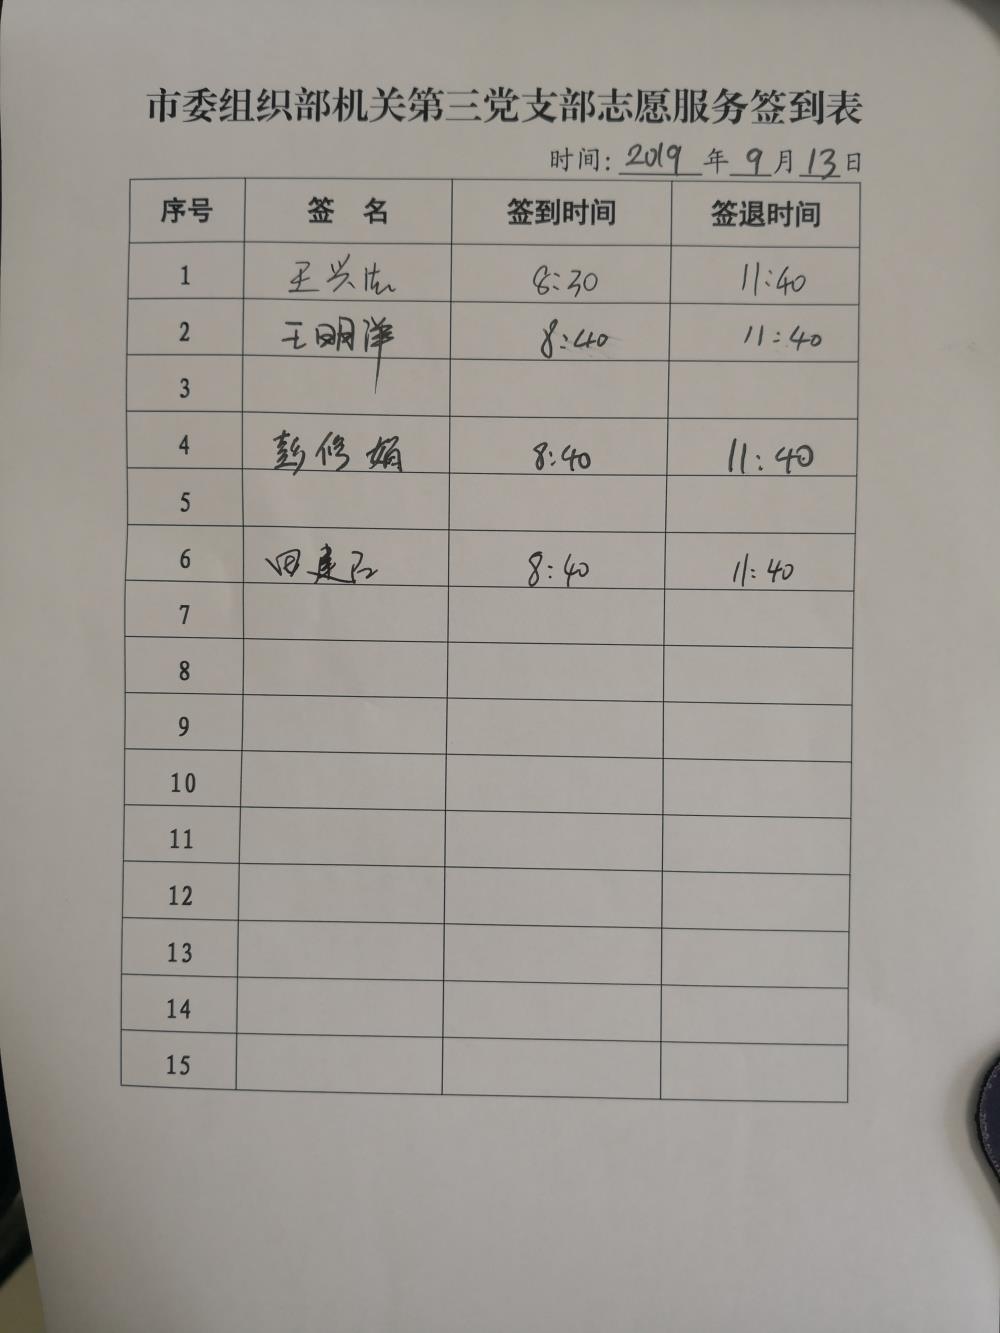 市委组织部机关第三党支部志愿服务签到表
时间: 2019 年 9 月 13 日
序号 签 名 签到时间 签退时间
1 王兴 8:30 11:40
2 王明洋 8:40 11:40
3
4 彭修娟 8:40 11:40
5
6 田建 8:40 11:40
7
8
9
10
11
12
13
14
15